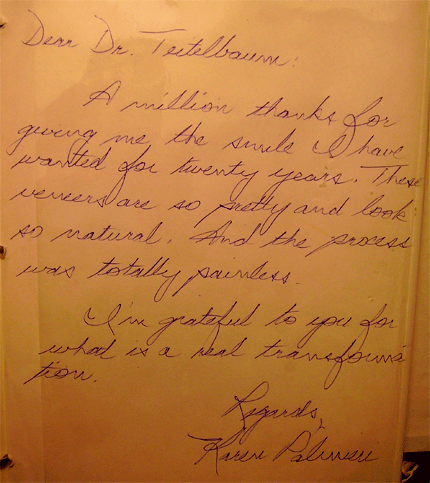 Dear Dr. Teitelbaum:
A million thanks for
giving me the smile I have
wanted for twenty years. These
veneers are so pretty and look
so natural. And the process
was totally painless.
I'm grateful to you for
what is a real transforma-
tion.
Regards,
Karen Palmieri